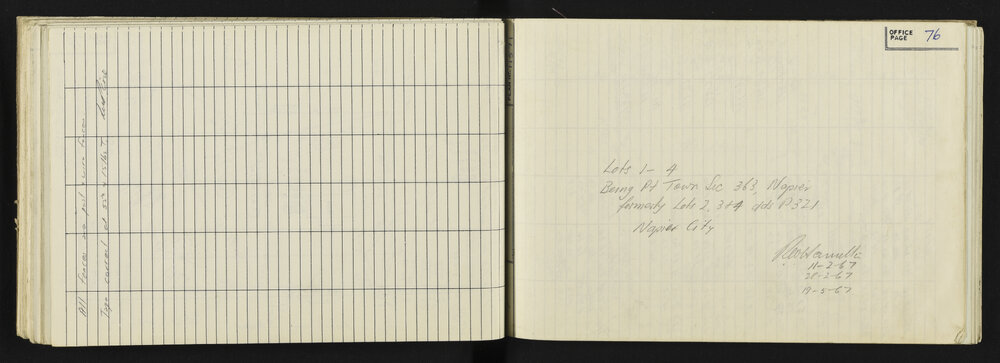 All fences are post & wire fences
Tape correct at 55° & 15 lbs T.
OFFICE PAGE 76
Lots 1 - 4
Being Pt Town Sec 363, Napier
formerly Lots 2, 3 & 4 dds P 321
Napier City
11-2-67
28-2-67
19-5-67